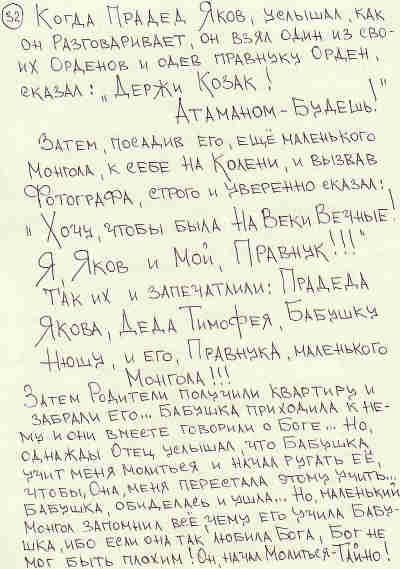 32 Когда Прадед Яков, услышал, как
он разговаривает, он взял один из сво-
их Орденов и одев правнуку Орден,
сказал: „Держи Козак!
Атаманом-Будешь!"
Затем, посадив его, ещё маленького
Монгола, к себе на Колени, и вызвав
Фотографа, строго и уверенно сказал:
„Хочу, чтобы была на Веки Вечные!
Я, Яков и Мой, Правнук!!!"
Так их и запечатлили: Прадеда
Якова, Деда Тимофея, Бабушку
Нюшу, и его, Правнука, маленького
Монгола!!!
Затем Родители получили квартиру и
забрали его... Бабушка приходила к не-
му и они вместе говорили о Боге... Но,
однажды Отец услышал, что Бабушка,
учит меня молиться и начал ругать её,
чтобы, она, меня перестала этому учить...
Бабушка, обиделась и ушла... Но, маленький
Монгол запомнил всё, чему его учила Бабу-
шка, ибо если она так любила Бога, Бог не
мог быть плохим! Он, начал Молиться-Тайно!